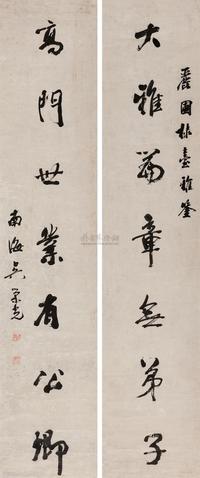 麗園林臺雅鉴
大雅篇章無弟子
高門世業有公卿
南海吳榮光